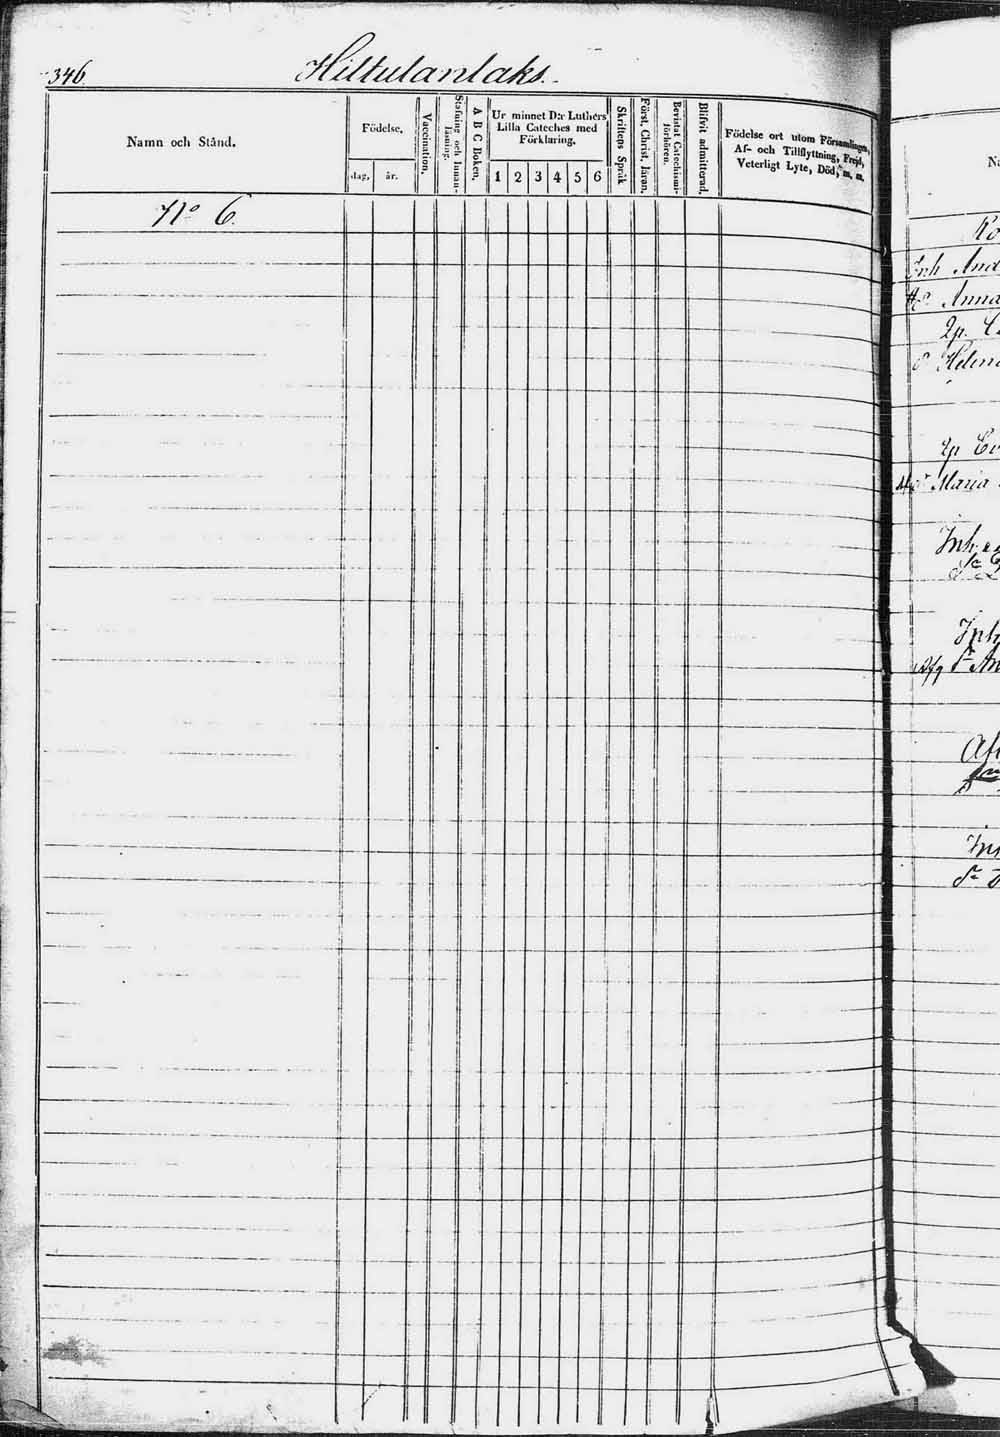 346.
Hiltulanlaks.
Namn och Stånd.
Födelse,
dag,
år.
Vaccination.
Stafning och Innan-
läsning.
A B C Boken.
Ur minnet D:r Luthers
Lilla Cateches med
Förklaring,
1 2 3 4 5 6
Skriftens Språk
Först. Christ. läran.
Bevistat Catechismi-
förhören.
Blifvit admitterad.
Födelse ort utom Församlingen,
Af- och Tillflyttning, Frejd,
Veterligt Lyte, Död, m. m.
No 6.
Na
Inh And
Anna
Maria
Inh